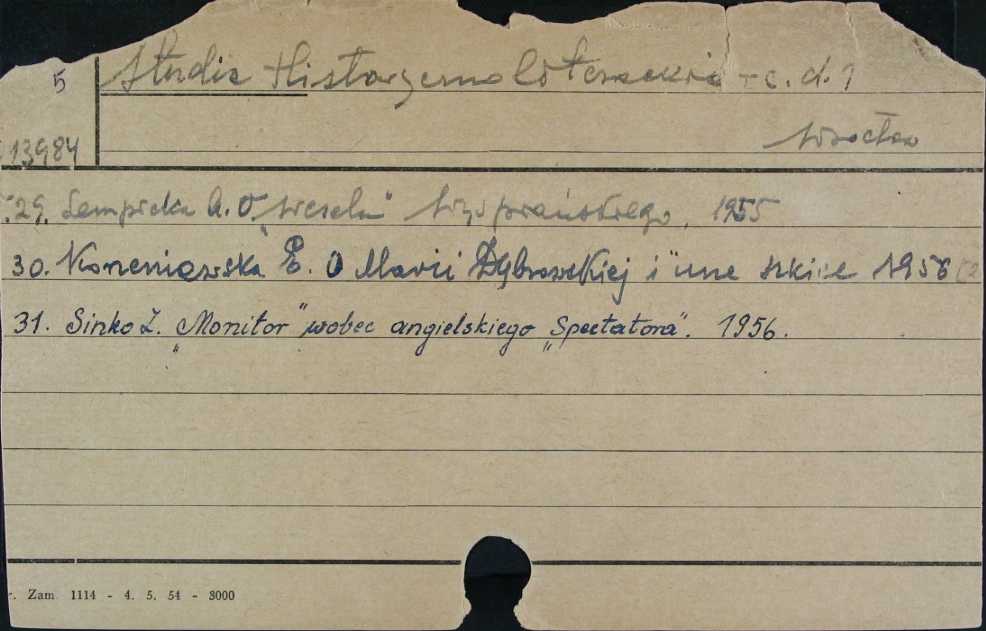 5 Studia Historycznoliterackie - c. d. 1
13984 Wrocław
29. Łempicka A. O „Weselu" Wyspiańskiego, 1955
30. Korzeniewska E. O Marii Dąbrowskiej i inne szkice 1956
31. Sinko Z. „Monitor" wobec angielskiego „Spectatora". 1956.
r. Zam 1114 - 4. 5. 54 - 3000